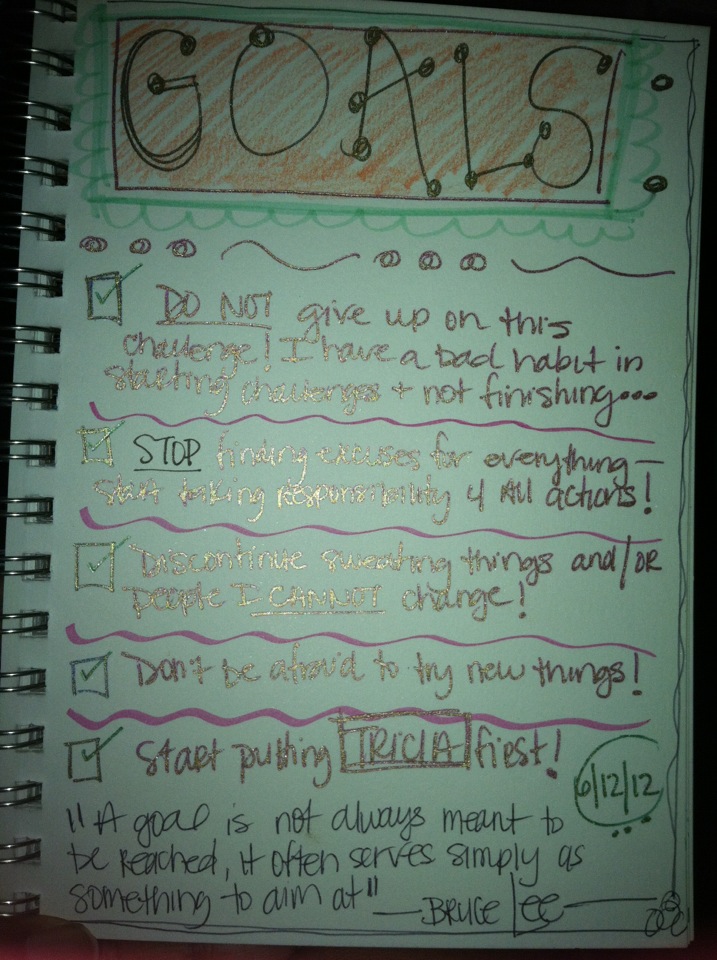 GOALS
DO NOT give up on this
challenge! I have a bad habit in
starting challenges + not finishing...
STOP finding excuses for everything—
start taking responsibility 4 All actions!
Discontinue sweating things and/OR
people I CANNOT change!
Don't be afraid to try new things!
Start putting TRICIA first!
6/12/12
"A goal is not always meant to
be reached, it often serves simply as
something to aim at"
—BRUCE Lee—